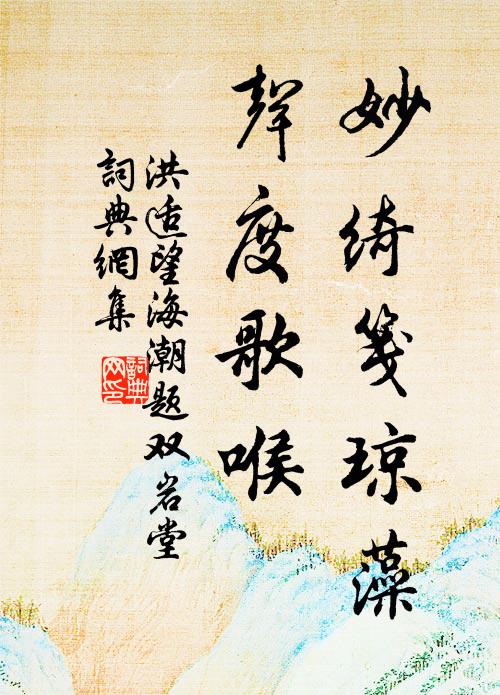 妙绮笺琼藻
聲度歌喉
洪适望海潮题双岩堂
詞典網集
詞典网印